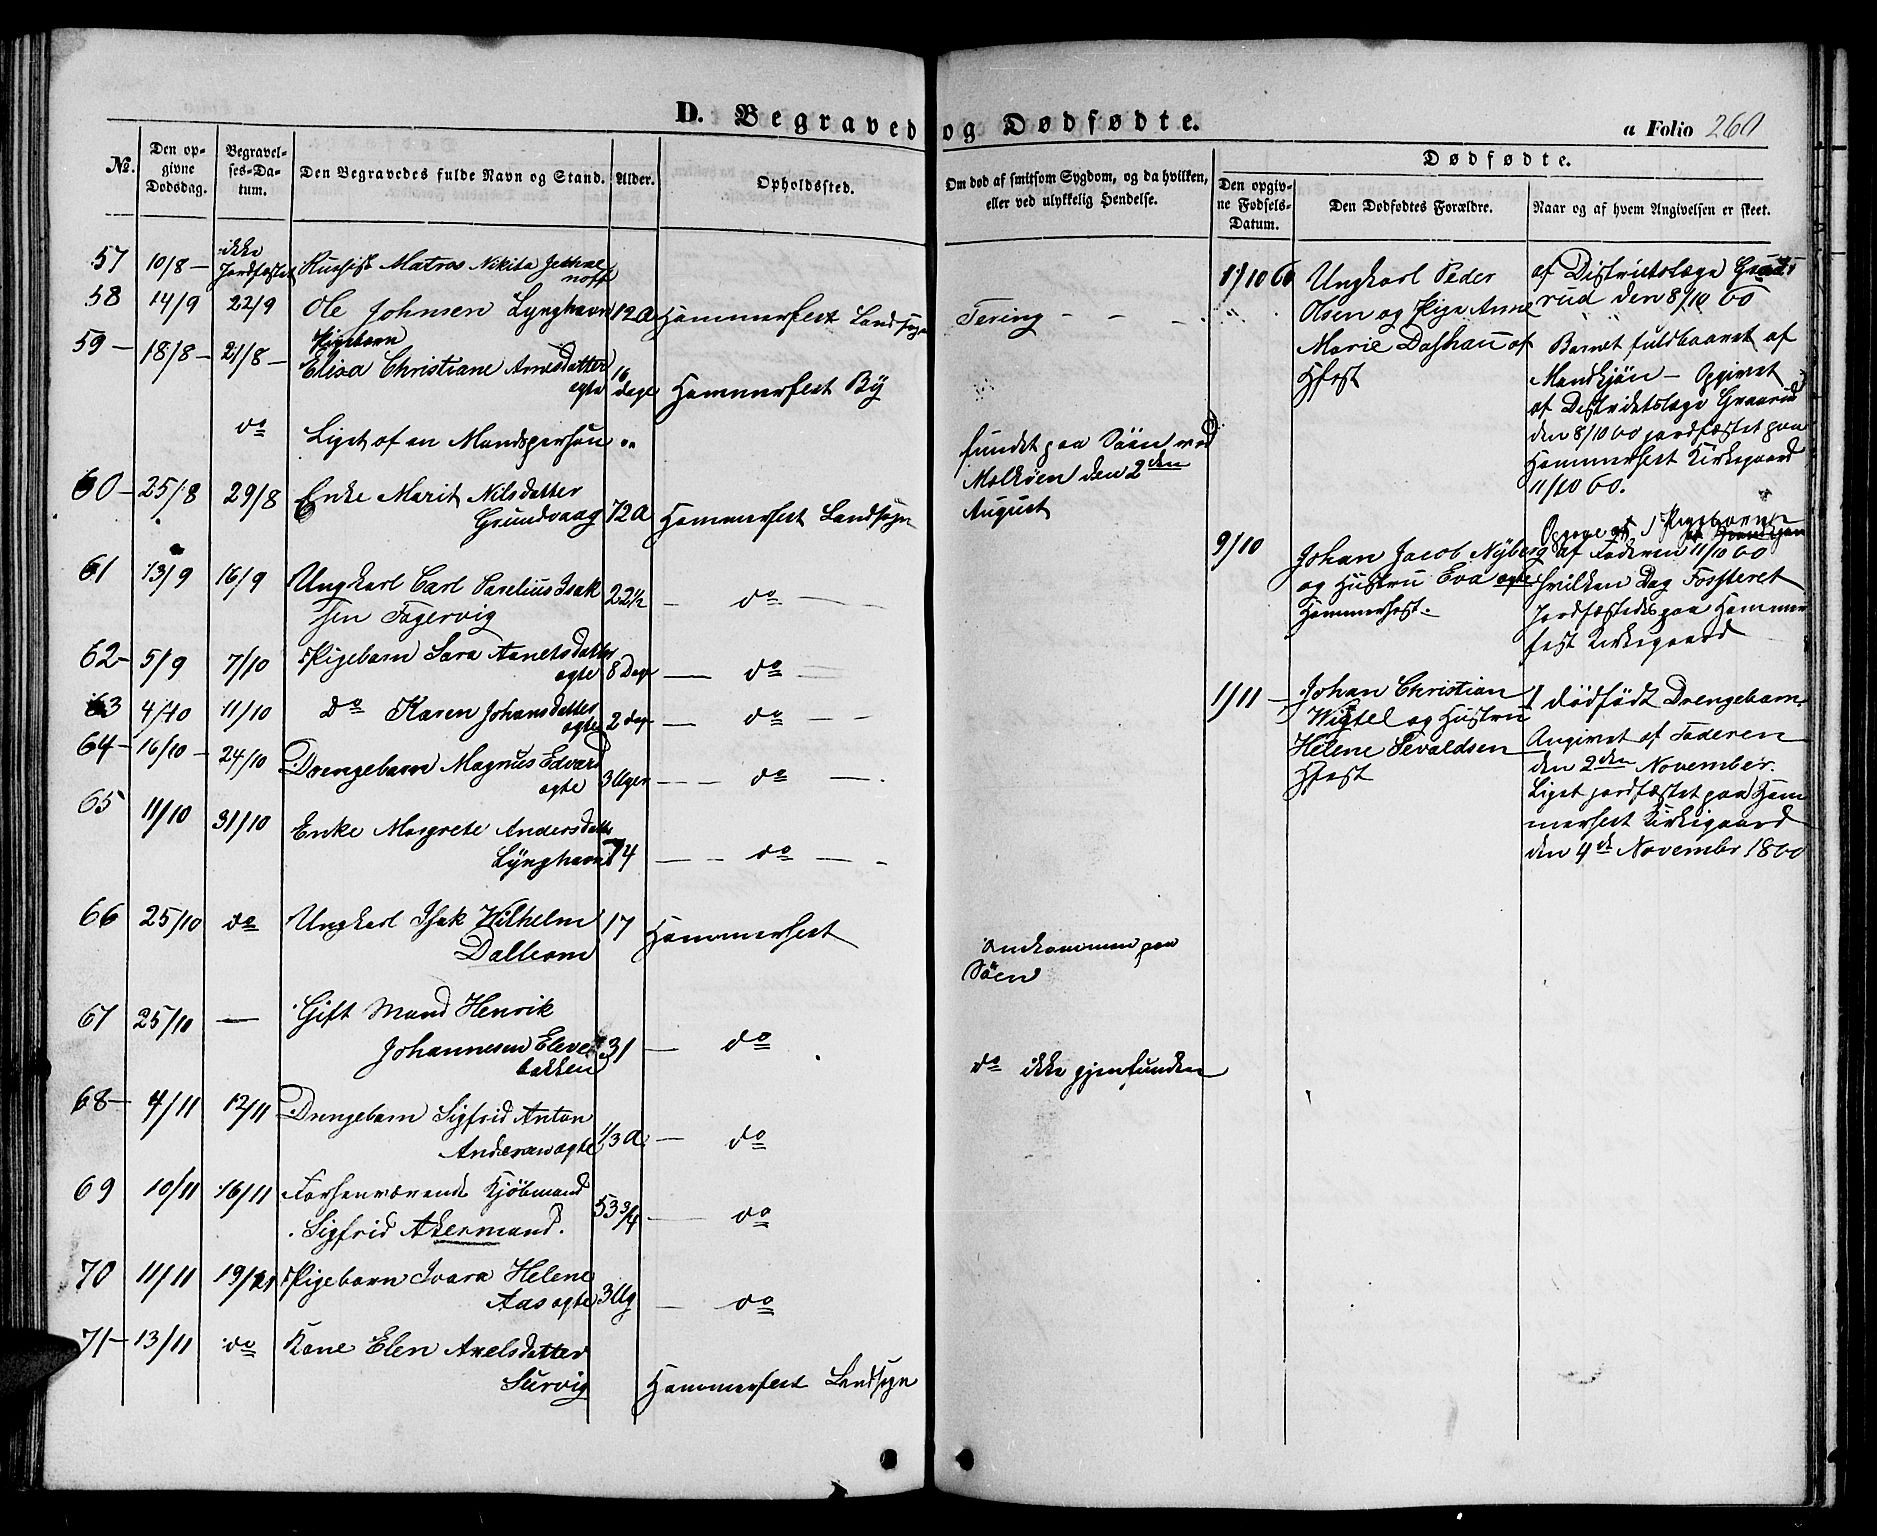 D. Begraved og Dødfødte.
a Folio 260
No. Den opgivne Dødsdag. Begravelses-Datum. Den Begravedes fulde Navn og Stand. Alder. Opholdssted.
Om død af smitsom Sygdom, og da hvilken, eller ved ulykkelig Hendelse.
Dødfødte.
Den opgivne Fødsels-Datum. Den Dødfødtes Forældre. Naar og af hvem Angivelsen er skeet.
57 10/8 - ikke Jordfæstet Russisk Matros Nikita
noff
58 14/9 22/9 Ole Johnsen Lynghavn 12 A Hammerfest Landsogn Tering - - -
59 - 18/8 - 21/8 - Pigebarn
Elisa Christiane Arnesdatter
ægte 16 dage Hammerfest By
do Liget af en Mandsperson " fundet paa Søen ved
Melkøen den 2den
August
60 - 25/8 29/8 Enke Marit Nilsdatter
Grundvaag 72 A Hammerfest Landsogn
61 13/9 16/9 Ungkarl Carl Parelius Isak
sen Fagervig 22½ - do - -
62 - 5/9 7/10 Pigebarn Sara Aanetsdatter
ægte 8 Dage - do -
63 4/10 11/10 do Karen Johansdatter
ægte 2 dage - do - -
64 - 16/10 - 24/10 Drengebarn Magnus Edvard
ægte 3 Uger - - do -
65 11/10 31/10 Enke Margrete Andersdatter
Lynghavn 74 - - do - -
66 25/10 do Ungkarl Isak Wilhelm
17 Hammerfest omkommen paa
Søen
67 25/10 - Gift Mand Henrik
Johannesen Elve
bakken 31 - do do ikke gjenfunden
68 - 4/11 12/11 Drengebarn Sigfrid Anton
Andersen ægte 1/3 A - do
69 10/11 16/11 Forhenværende Kjøbmand
Sigfrid Akermand. 53 3/4 - do
70 11/11 19/11 Pigebarn Ivara Helene
Aas ægte 3 Ug - do
71 - 13/11 do Kone Elen Axelsdatter
Survig Hammerfest Landsogn
1/10 60 Ungkarl Peder
Olsen og Pige Anne
Marie Dashau af
Hfest
af Districtslæge Graa
rud den 8/10 60
Barnet fuldbaaret af
Mandkjøn - Opgivet
af Distriktslæge Graarud
den 8/10 60 jordfæstet paa
Hammerfest Kirkegaard
11/10 60.
9/10 Johan Jacob Nyberg
og Hustru Eva ægte
Hammerfest.
Opgive af 1 Pigebarn
af Faderen 11/10 60
hvilken Dag Fosteret
Jordfæstedes paa Hammer
fest Kirkegaard
1/11 - Johan Christian
Wigtel og Hustru
Helene Sevaldsen
Hfest
1 dødfødt Drengebarn.
Angivet af Faderen
den 2den November.
Liget jordfæstet paa Ham
merfest Kirkegaard
den 4de Novembr 1860